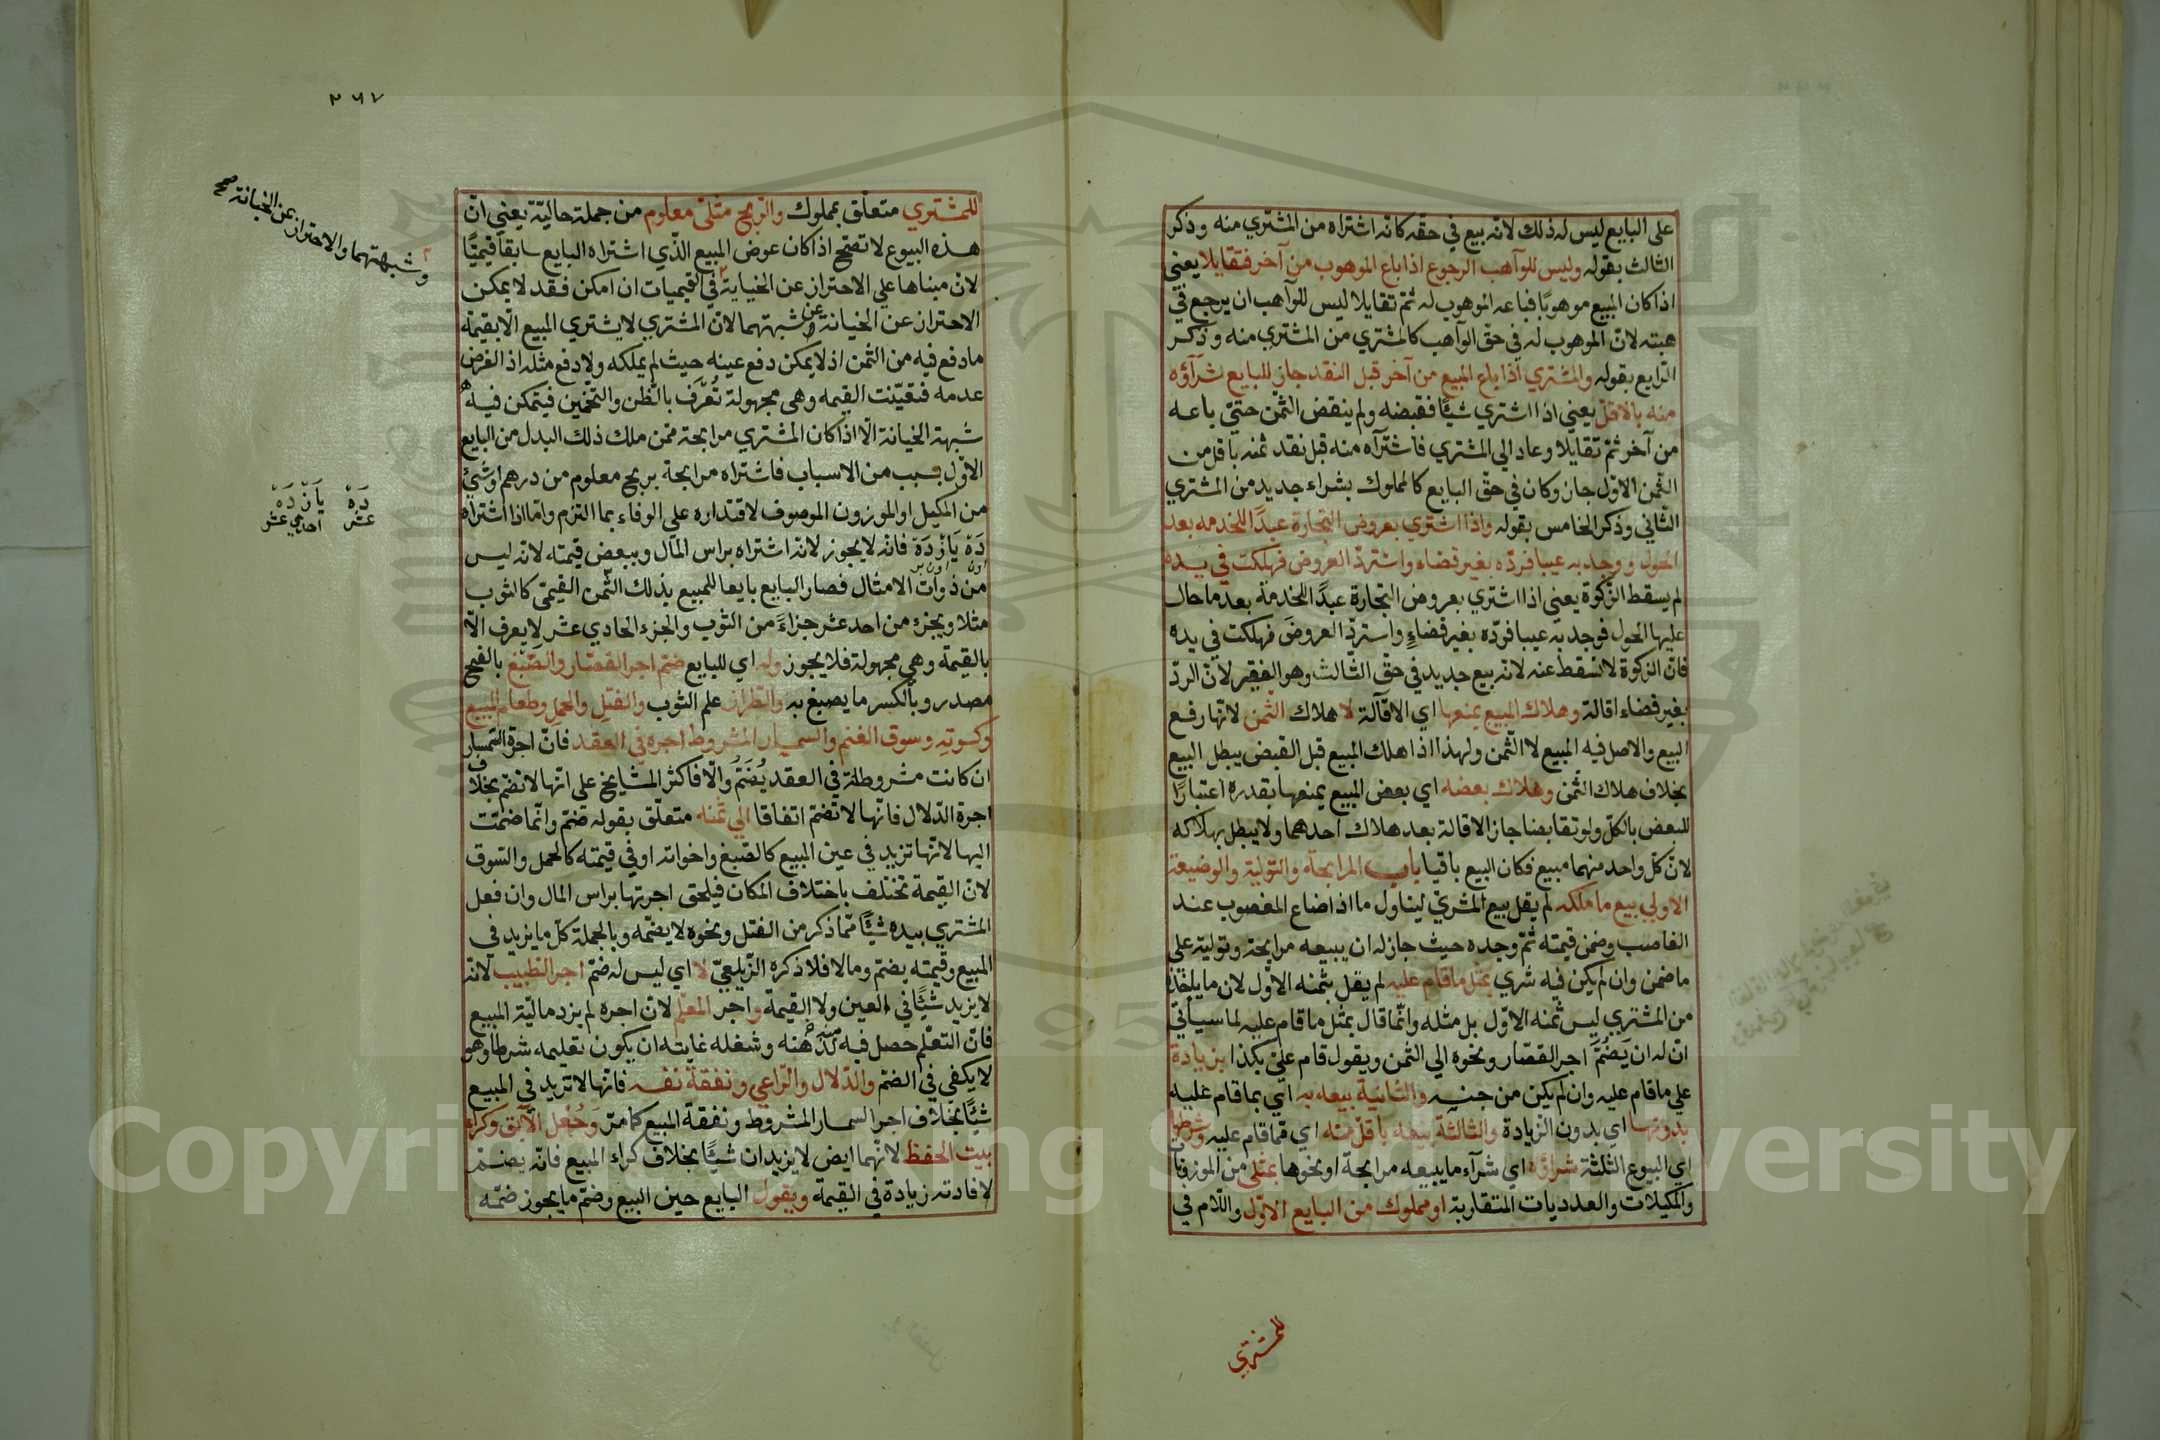 على البايع ليس له ذلك لانه بيع في حقه كانه اشتراه من المشتري منه وذكر
الثالث بقوله وليس للواهب الرجوع اذا باع الموهوب من آخر فتقايلا يعني
اذا كان المبيع موهوبا فباعه الموهوب له ثم تقايلا ليس للواهب ان يرجع في
هبته لان الموهوب له في حق الواهب كالمشتري من المشتري منه وذكر
الرابع بقوله والمشتري اذا باع المبيع من آخر قبل النقد جاز للبايع شرآؤه
منه بالاقل يعني اذا اشتري شيئا فقبضه ولم ينقض الثمن حتي باعه
من آخر ثم تقايلا وعاد الي المشتري فاشتراه منه قبل نقد ثمنه باقل من
الثمن الاول جاز وكان في حق البايع كالمملوك بشراء جديد من المشتري
الثاني وذكر الخامس بقوله واذا اشتري بعروض التجارة عبدا للخدمه بعد
الحول ووجد به عيبا فرده بغير قضاء واسترد العروض فهلكت في يده
لم يسقط الزكوة يعني اذا اشتري بعروض التجارة عبدا للخدمة بعد ما حال
عليها الحول فوجد به عيبا فرده بغير قضاء واسترد العروض فهلكت في يده
فان الزكوة لا تسقط عنه لانه بيع جديد في حق الثالث وهو الفقير لان الرد
بغير قضاء اقالة وهلاك المبيع يمنعها اي الاقالة لا هلاك الثمن لانها رفع
البيع والاصل فيه المبيع لا الثمن ولهذا اذا هلك المبيع قبل القبض يبطل البيع
بخلاف هلاك الثمن وهلاك بعضه اي بعض المبيع يمنعها بقدره اعتبارا
للبعض بالكل ولو تقابضا جاز الاقالة بعد هلاك احدهما ولا يبطل بهلاكه
لان كل واحد منهما مبيع فكان البيع باقيا باب المرابحة والتولية والوضيعة
الاولي بيع ما ملكه لم يقل بيع المشري ليتناول ما اذا ضاع المغصوب عند
الغاصب وضمن قيمته ثم وجده حيث جاز له ان يبيعه مرابحة وتولية علي
ما ضمن وان لم يكن فيه شري بمثل ما قام عليه لم يقل بثمنه الاول لان ما يأخذ
من المشتري ليس ثمنه الاول بل مثله وانما قال بمثل ما قام عليه لما سياتي
ان له ان يضم اجر القصار ونحوه الي الثمن ويقول قام علي بكذا بزيادة
علي ما قام عليه وان لم يكن من جنسه والثانية بيعه به اي بما قام عليه
بدونها اي بدون الزيادة والثالثة بيعه باقل منه اي مما قام عليه وشرطها
اي البيوع الثلثة شراؤه اي شرآء ما يبيعه مرابحة او نحوها بمثلي من الموزونات
والمكيلات والعدديات المتقاربة او مملوك من البايع الاول واللام في
للمشتري
٢٦٧
للمشتري متعلق بمملوك والربح مثلي معلوم من جملة حالية يعني ان
هذه البيوع لا تصح اذا كان عوض المبيع الذي اشتراه البايع سابقا قيميا
لان مبناها علي الاحتراز عن الخيانة في القيميات ان امكن فقد لا يمكن
الاحتراز عن الخيانة وعن شبهتهما لان المشتري لا يشتري المبيع الا بقيمة
ما دفع فيه من الثمن اذ لا يمكن دفع عينه حيث لم يملكه ولا دفع مثله اذ الفرض
عدمه فتعينت القيمه وهي مجهولة تعرف بالظن والتخمين فيتمكن فيه
شبهة الخيانة الا اذا كان المشتري مرابحة ممن ملك ذلك البدل من البايع
الاول بسبب من الاسباب فاشتراه مرابحة بربح معلوم من درهم او شئ
من المكيل او الموزون الموصوف لاقتداره علي الوفاء بما التزم واما اذا اشتراه
ده يازده فانه لا يجوز لانه اشتراه براس المال وببعض قيمته لانه ليس
من ذوات الامثال فصار البايع بايعا للمبيع بذلك الثمن القيمي كالثوب
مثلا وبجزء من احد عشر جزاء من الثوب والجزء الحادي عشر لا يعرف الا
بالقيمة وهي مجهولة فلا يجوز وله اي للبايع ضم اجر القصار والصبغ بالفتح
مصدر وبالكسر ما يصبغ به والطراز علم الثوب والفتل والحمل وطعام المبيع
وكسوته وسوق الغنم والسمسار المشروط اجره في العقد فان اجرة السمسار
ان كانت مشروطة في العقد يضم والا فاكثر المشايخ علي انها لا تضم بخلاف
اجرة الدلال فانها لا تضم اتفاقا الي ثمنه متعلق بقوله ضم وانما ضمت
اليها لانها تزيد في عين المبيع كالصبغ واخواته او في قيمته كالحمل والسوق
لان القيمة تختلف باختلاف المكان فيلحق اجرتها براس المال وان فعل
المشتري بيده شيئا مما ذكر من الفتل ونحوه لا يضمه وبالجملة كل ما يزيد في
المبيع وقيمته يضم وما لا فلا ذكره الزيلعي لا اي ليس له ضم اجر الطبيب لانه
لا يزيد شيئا في العين ولا القيمة واجر المعلم لان اجره لم يزد مالية المبيع
فان التعلم حصل فيه لذهنه وشغله غايته ان يكون تعليمه شرطا وهو
لا يكفي في الضم والدلال والراعي ونفقة نفسه فانها لا تزيد في المبيع
شيئا بخلاف اجر السمسار المشروط ونفقة المبيع كما مر وجعل الآبق وكراء
بيت الحفظ لانهما ايض لا يزيدان شيئا بخلاف كراء المبيع فانه يضم
لافادته زيادة في القيمة ويقول البايع حين البيع وضم ما يجوز ضمه
وشبهتهما والاحتراز عن الخيانة صح
ده يازده
عشر احدي عشر
Copyright © King Saud University